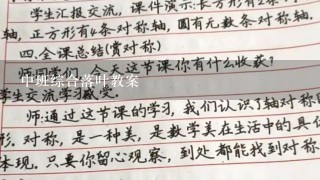 学生汇报交流，课件演示：长方形有2条
轴，正方形有4条对称轴，圆有无数条对称轴.
四.全课总结（赏对称）
今天这节课你有什么收获？
中班综合落叶教案
学生交流学习
师：通过这节课的学习，我们认识了轴对称
形.对称，是一种美，是数学美在生活中的具
体现.只要你留心观察，到处都能找到对称